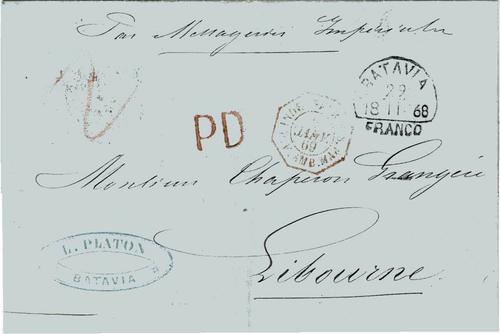 Par Messageries Impériales
BATAVIA
29
18 11 68
FRANCO
PD
JANV
69
Monsieur Chaperon Grangère
Libourne
L. PLATON
BATAVIA